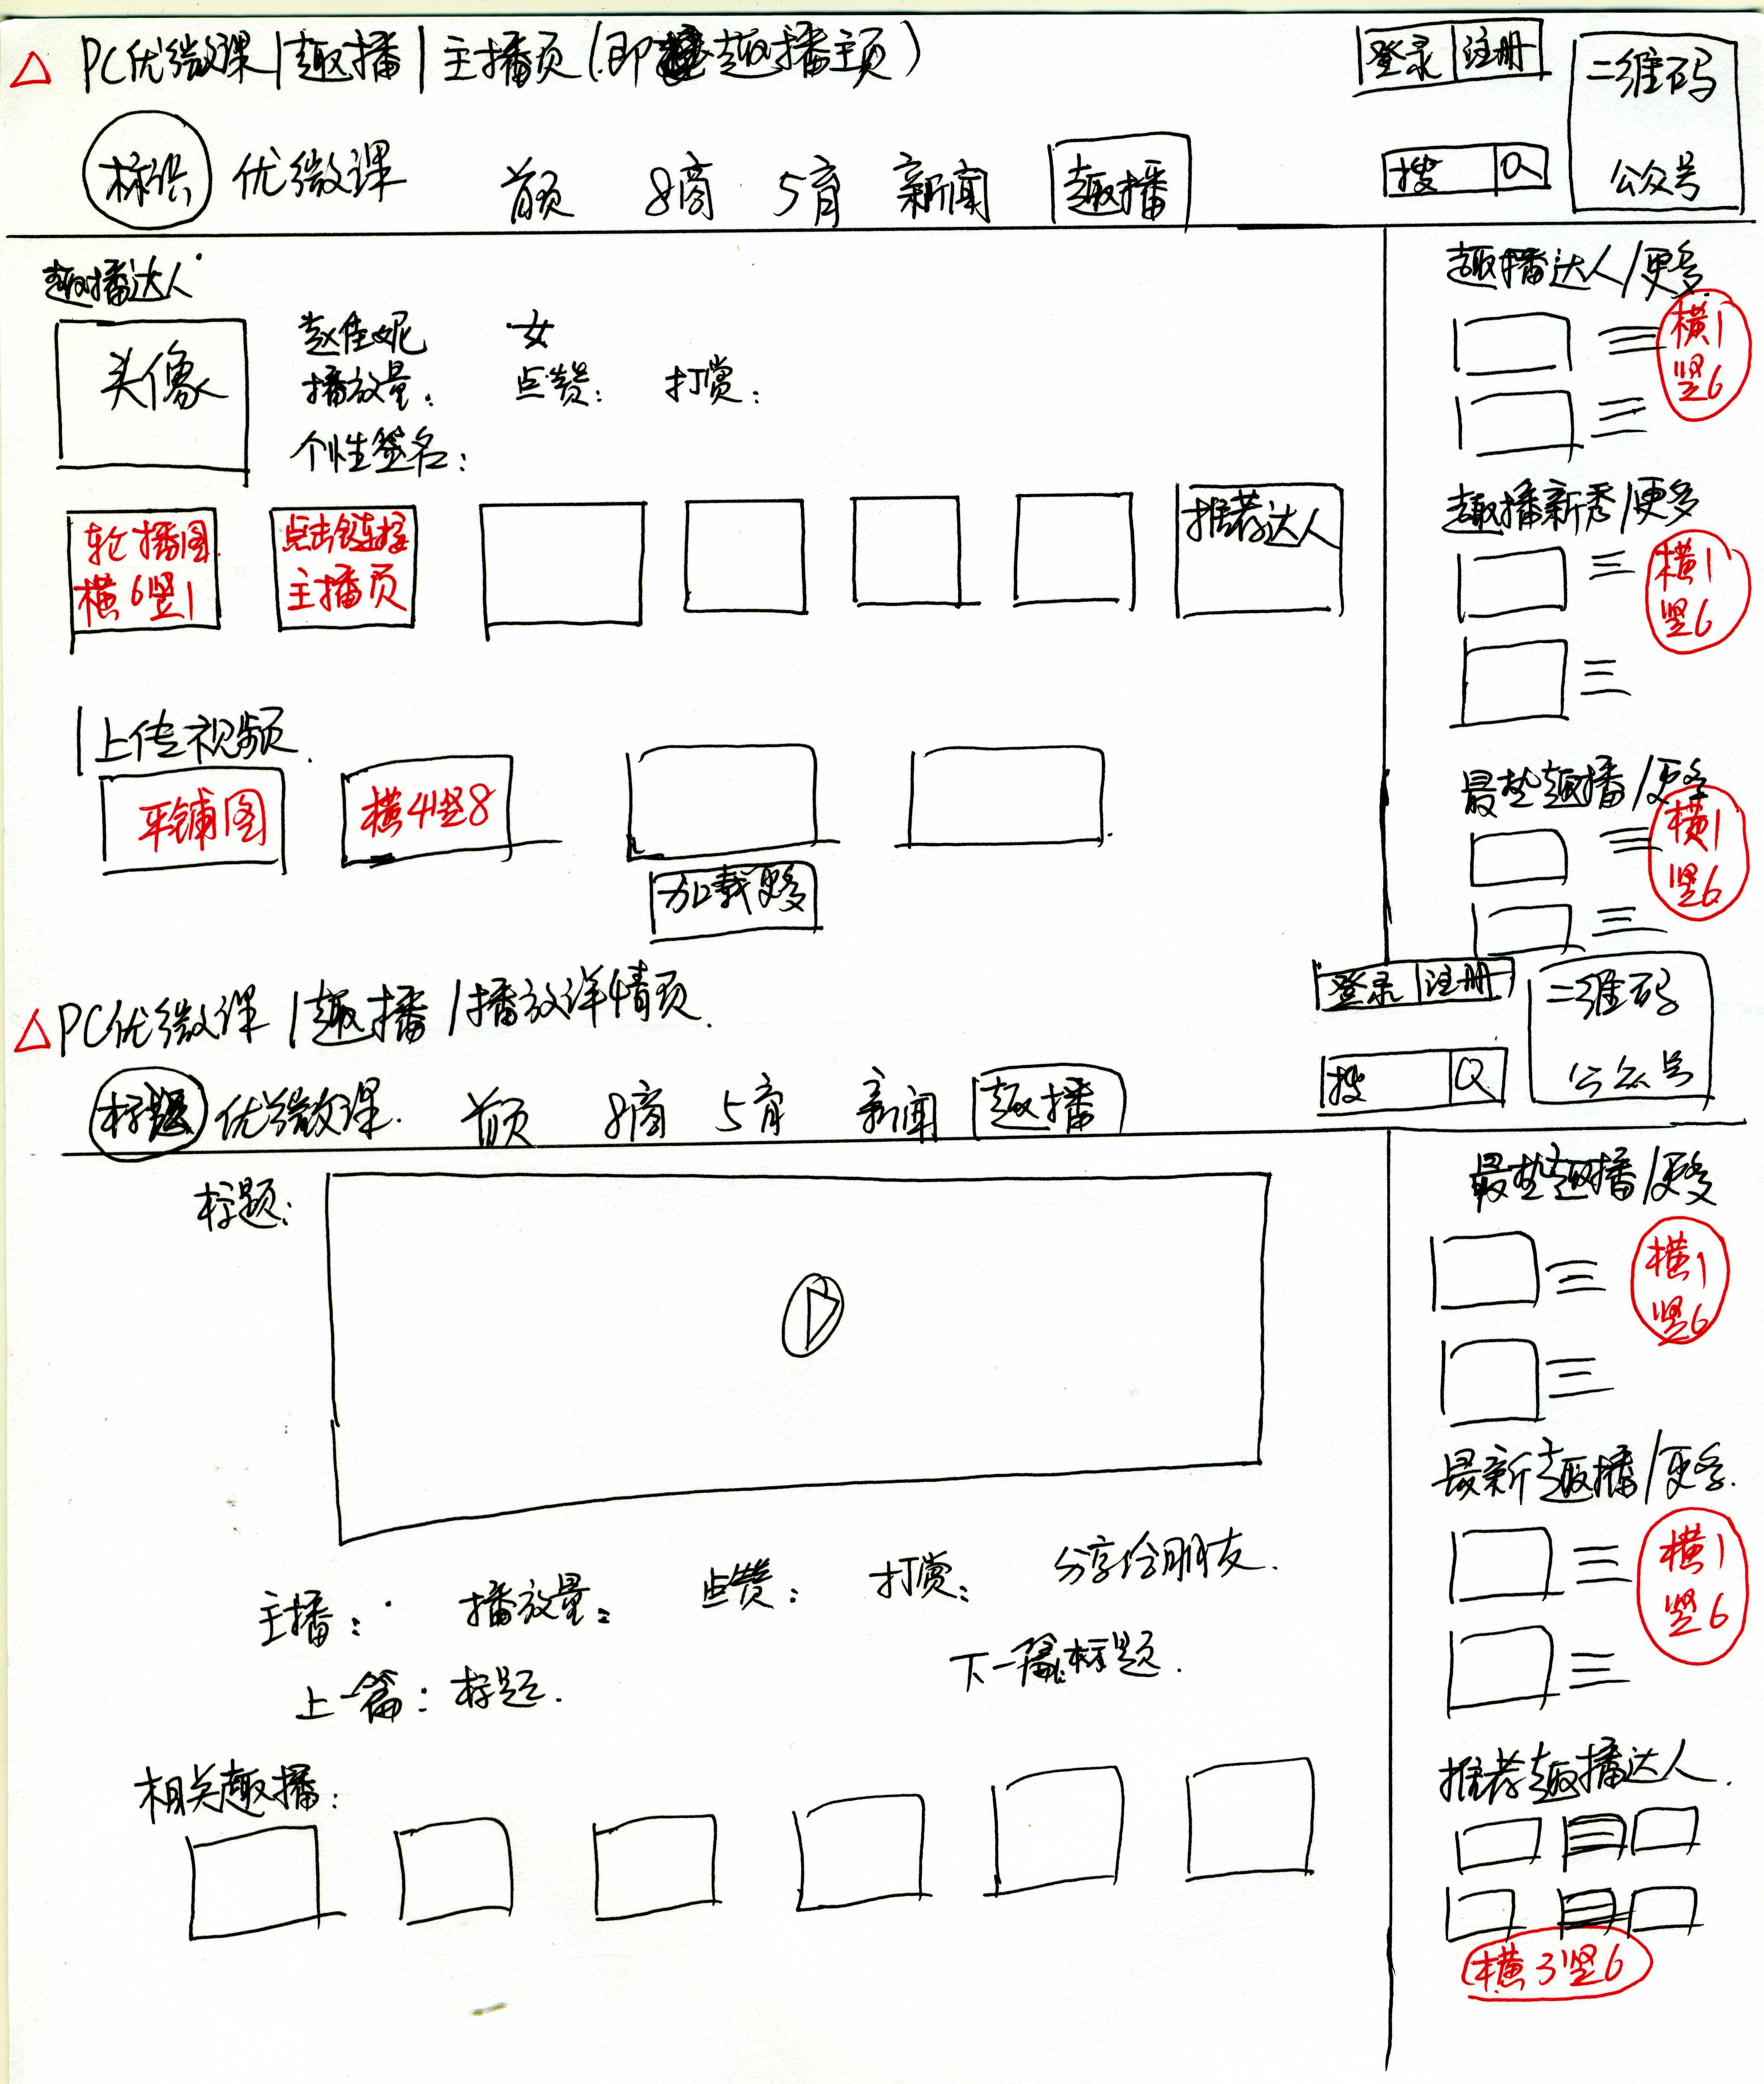 △ PC优微课|趣播|主播页(即趣播主页)
登录 注册
二维码
公众号
标识 优微课 首页 8商 5育 新闻 趣播
搜 Q
趣播达人
头像
赵佳妮 女
播放量: 点赞: 打赏:
个性签名:
轮播图
横6竖1
点击链接
主播页
推荐达人
上传视频
平铺图
横4竖8
加载更多
趣播达人/更多
横1
竖6
趣播新秀/更多
横1
竖6
最热趣播/更多
横1
竖6
△PC优微课|趣播|播放详情页
登录 注册
二维码
公众号
标题 优微课 首页 8商 5育 新闻 趣播
搜 Q
标题:
主播: 播放量: 点赞: 打赏: 分享给朋友.
上一篇:标题. 下一篇:标题.
相关趣播:
最热趣播/更多
横1
竖6
最新趣播/更多
横1
竖6
推荐趣播达人
横3竖6